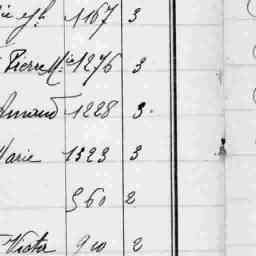 1167 3
Pierre Mie 1276 3
Armand 1228 3.
Marie 1323 3
560 2
Victor 910 2